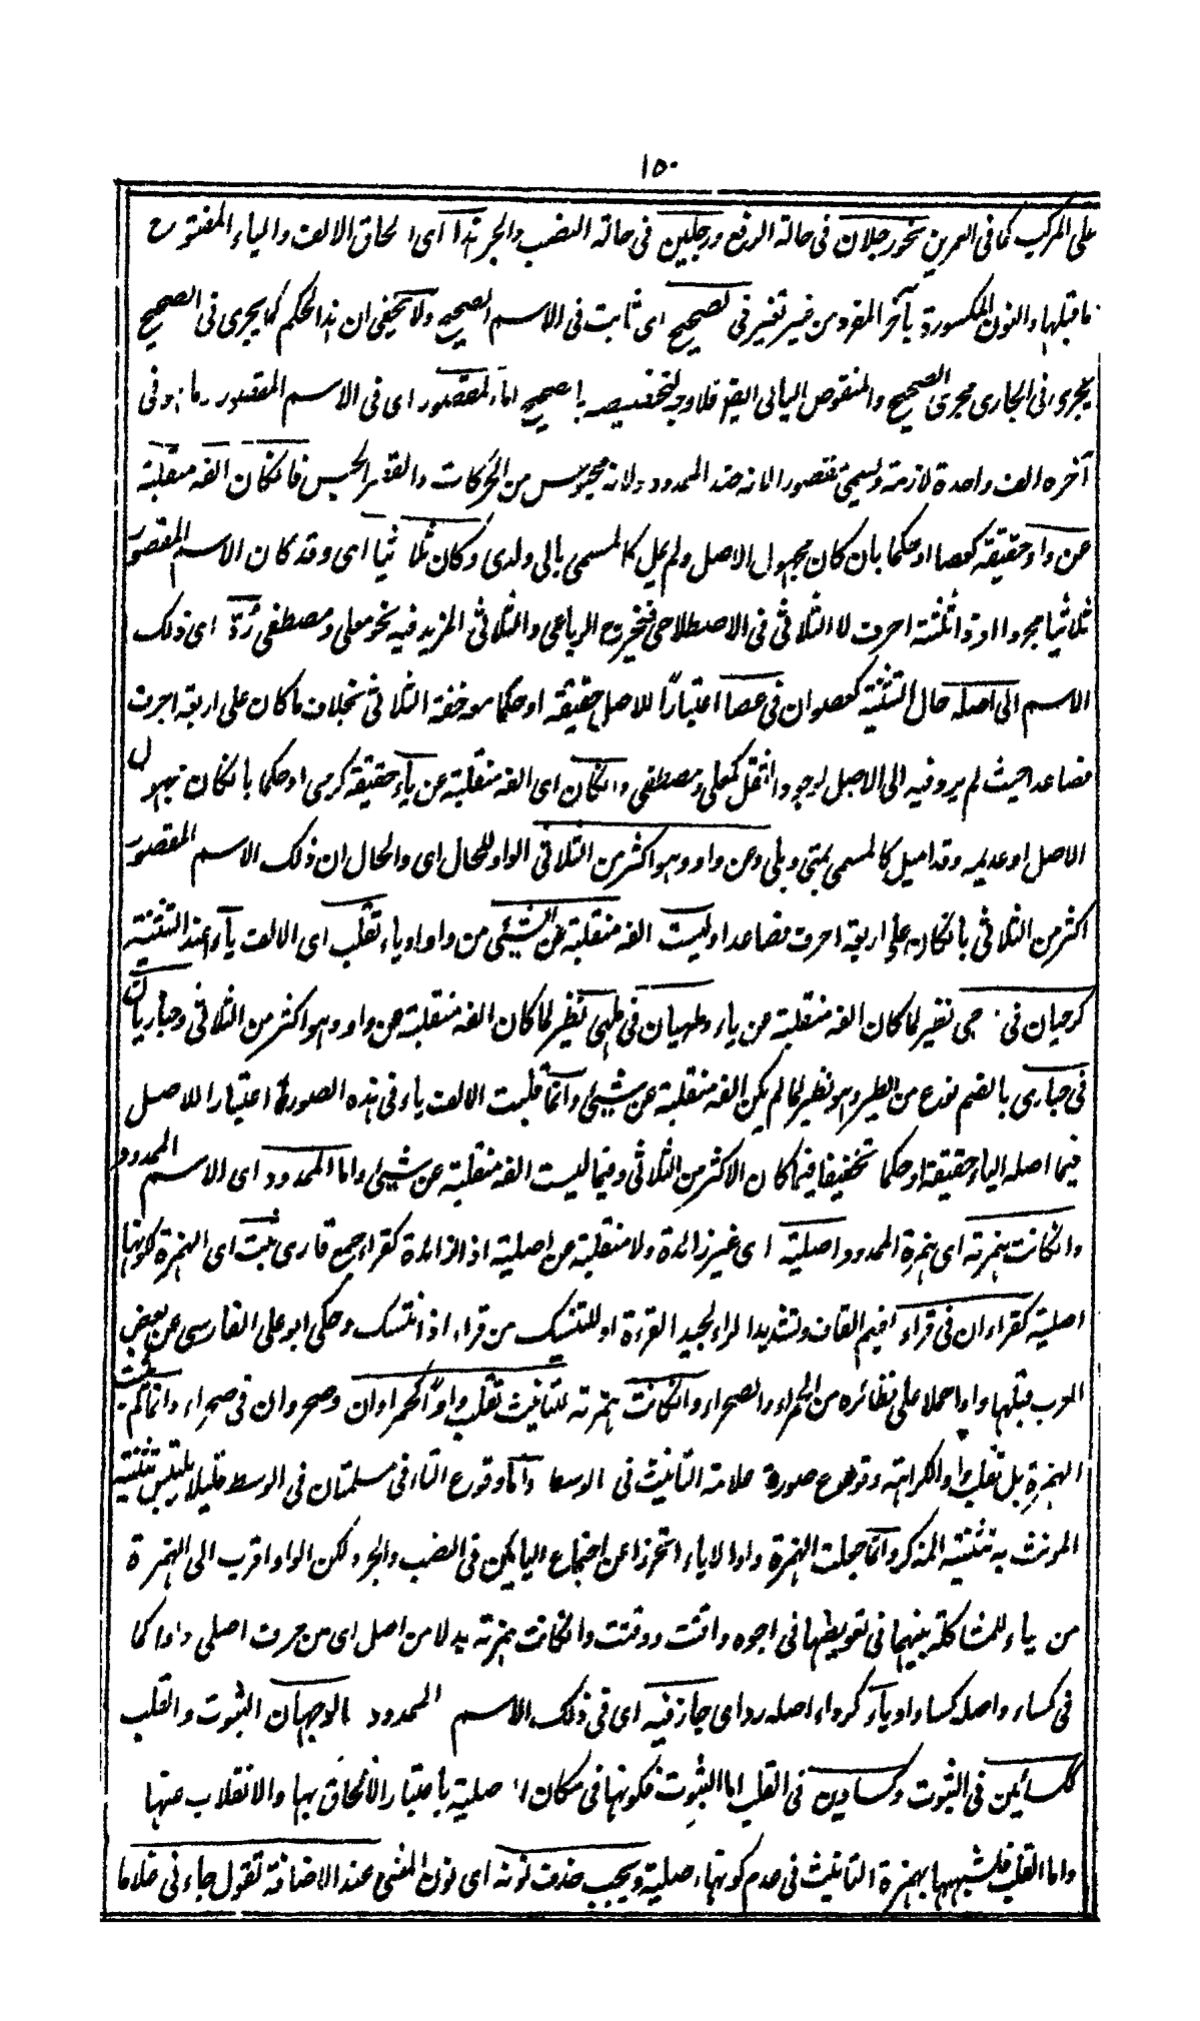 ١٥٠
على المركب كما فى العمرين نحو رجلان فى حالة الرفع ورجلين فى حالة النصب والجر هذا اى الحاق الالف والياء المفتوح
ما قبلها والنون المكسورة بآخر المفرد من غير تغير فى الصحيح اى ثابت فى الاسم الصحيح ولا يخفى ان هذا الحكم كما يجرى فى الصحيح
يجرى فى الجارى مجرى الصحيح والمنقوص اليائى ايضا فلا وجه لتخصيصه بالصحيح اما المقصور اى فى الاسم المقصور وما هو فى
آخره الف واحدة لازمة وسمى مقصورا لانه ضد الممدود ولانه محبوس من الحركات والقصر الحبس فان كان الفه منقلبة
عن واو حقيقة كعصا او حكما بان كان مجهول الاصل ولم يمل كالمسمى بالى ولدى وكان ثلاثيا اى وقد كان الاسم المقصور
ثلاثيا مجردا او ذا ثلثة احرف لا الثلاثى فى الاصطلاحى فيخرج الرباعى والثلاثى المزيد فيه نحو معلى ومصطفى رد اى ذلك
الاسم الى اصله حال التثنية كعصوان فى عصا اعتبارًا للاصل حقيقة او حكما مع خفة الثلاثى بخلاف ما كان على اربعة احرف
فصاعدا حيث لم يرد فيه الى الاصل لوجود الثقل كمعلى ومصطفى وان كان اى الفه منقلبة عن ياء حقيقة كرحى او حكما بان كان مجهول
الاصل او عديمه وقد اميل كالمسمى بمتى وبلى وعن واو وهو اكثر من الثلاثى الواو للحال اى والحال ان ذلك الاسم المقصور
اكثر من الثلاثى بان كان على اربعة احرف فصاعدا وليست الفه منقلبة عن الشيئى من واو او ياء تقلب اى الالف ياء عند التثنية
كرحيان فى رحى نظير لما كان الفه منقلبة عن ياء وملهيان فى ملهى نظير لما كان الفه منقلبة عن واو وهو اكثر من الثلاثى وحباريان
فى حبارى بالضم نوع من الطير وهو نظير لما لم يكن الفه منقلبة عن شيئ وانما قلبت الالف ياء فى هذه الصورة اعتبارا للاصل
فيما اصله الياء حقيقة او حكما تخفيفا فيما كان الاكثر من الثلاثى وفيما ليست الفه منقلبة عن شيئ واما الممدود اى الاسم الممدود
وان كانت همزته اى همزة الممدود اصلية اى غير زائدة ولا منقلبة عن اصلية اذ الزائدة كقراء جمع قارى ثبت اى الهمزة لكونها
اصلية كقراءان فى قراء بضم القاف وتشديد الراء لجيد القرءة او للتنسك من قراء اذا تنسك وحكى ابو على الفارسى عن بعض
العرب قبلها واوا حملا على نظائره من الحمراء والصحراء وان كانت همزته للتانيث تقلب واوًا كحمراوان وصحروان فى صحراء وانما لم تحذف
الهمزة بل تقلب واوا لكراهة وقوع صورة علامة التانيث فى الوسط واما وقوع التاء فى مسلمتان فى الوسط فليلا يلتبس تثنية
المونث به تثنيته المذكر وانما جعلت الهمزة واوا لا ياء احترازا عن اجتماع اليائين فى النصب والجر ولكن الواو اقرب الى الهمزة
من ياء للمشاكلة بينهما فى تعويضها فى اجوه واقتت ووقتت وان كانت همزته بدلا من اصل اى من حرف اصلى واوا كما
فى كساء واصله كساو او ياء كرداء اصله رداى جاز فيه اى فى ذلك الاسم الممدود الوجهان الثبوت والقلب
ككسائين فى الثبوت وكساوين فى القلب اما الثبوت فلكونها فى مكان الاصلية باعتبار الالحاق بها والانقلاب عنها
واما القلب فلشبهها بهمزة التانيث فى عدم كونها اصلية ويجب حذف نونه اى نون المثنى عند الاضافة تقول جاءنى غلاما